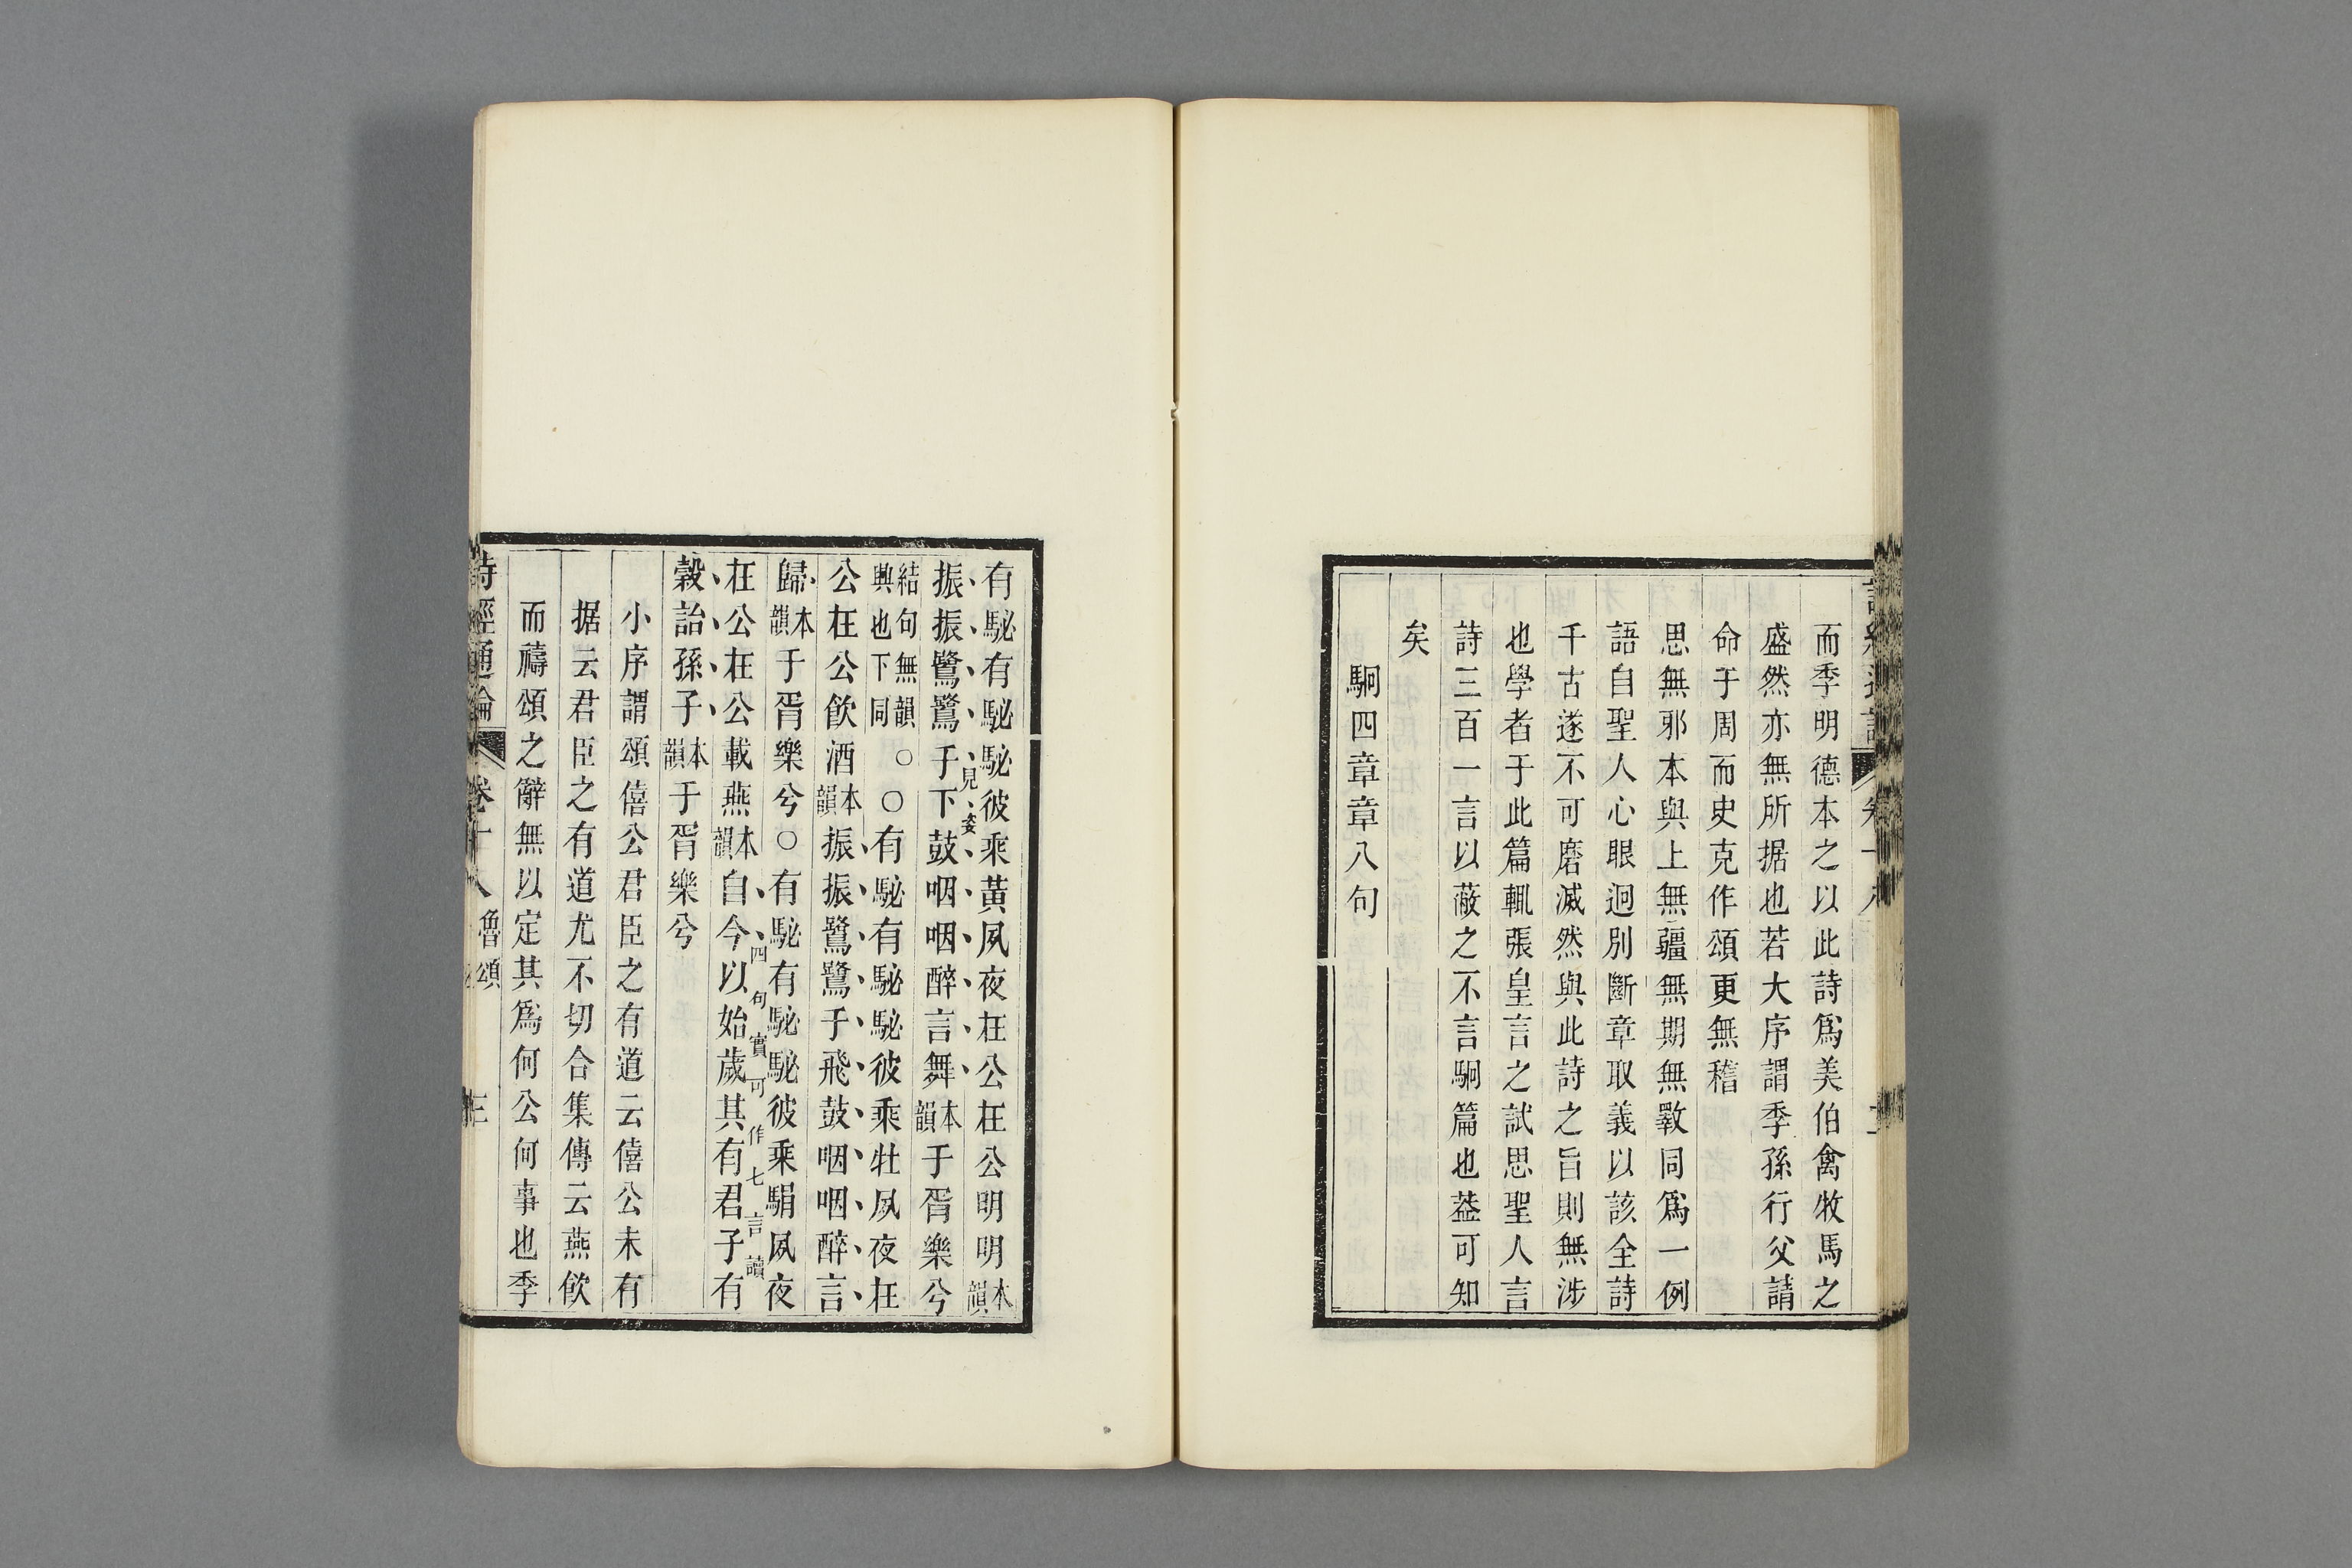 而季明德本之以此詩爲美伯禽牧馬之
盛然亦無所据也若大序謂季孫行父請
命于周而史克作頌更無稽
思無邪本與上無疆無期無斁同爲一例
語自聖人心眼迥別斷章取義以該全詩
千古遂不可磨滅然與此詩之旨則無涉
也學者于此篇輒張皇言之試思聖人言
詩三百一言以蔽之不言駉篇也葢可知
矣
駉四章章八句
有駜有駜駜彼乘黃夙夜在公在公明明本韻
振振鷺鷺于下鼓咽咽醉言舞本韻于胥樂兮
見姿
結句無韻○
興也下同
○有駜有駜駜彼乘牡夙夜在
公在公飲酒本韻振振鷺鷺于飛鼓咽咽醉言
歸本韻于胥樂兮○有駜有駜駜彼乘駽夙夜
在公在公載燕本韻自今以始歲其有君子有
四句實可作七言讀
穀詒孫子本韻于胥樂兮
小序謂頌僖公君臣之有道云僖公未有
据云君臣之有道尤不切合集傳云燕飲
而禱頌之辭無以定其爲何公何事也季
詩經通論 卷十八 魯頌 三